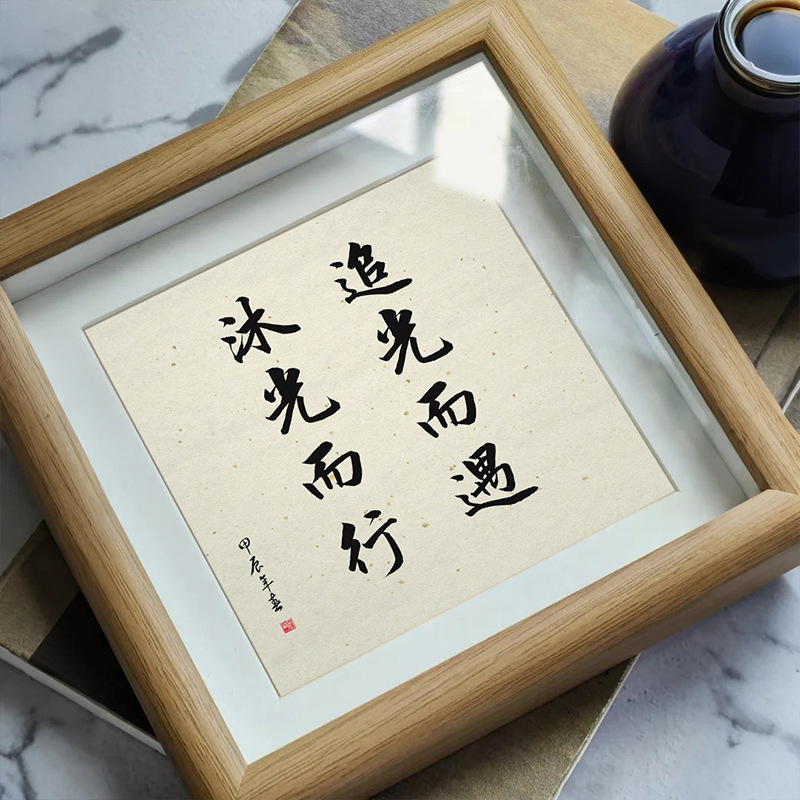 追光而遇
沐光而行
甲辰年春